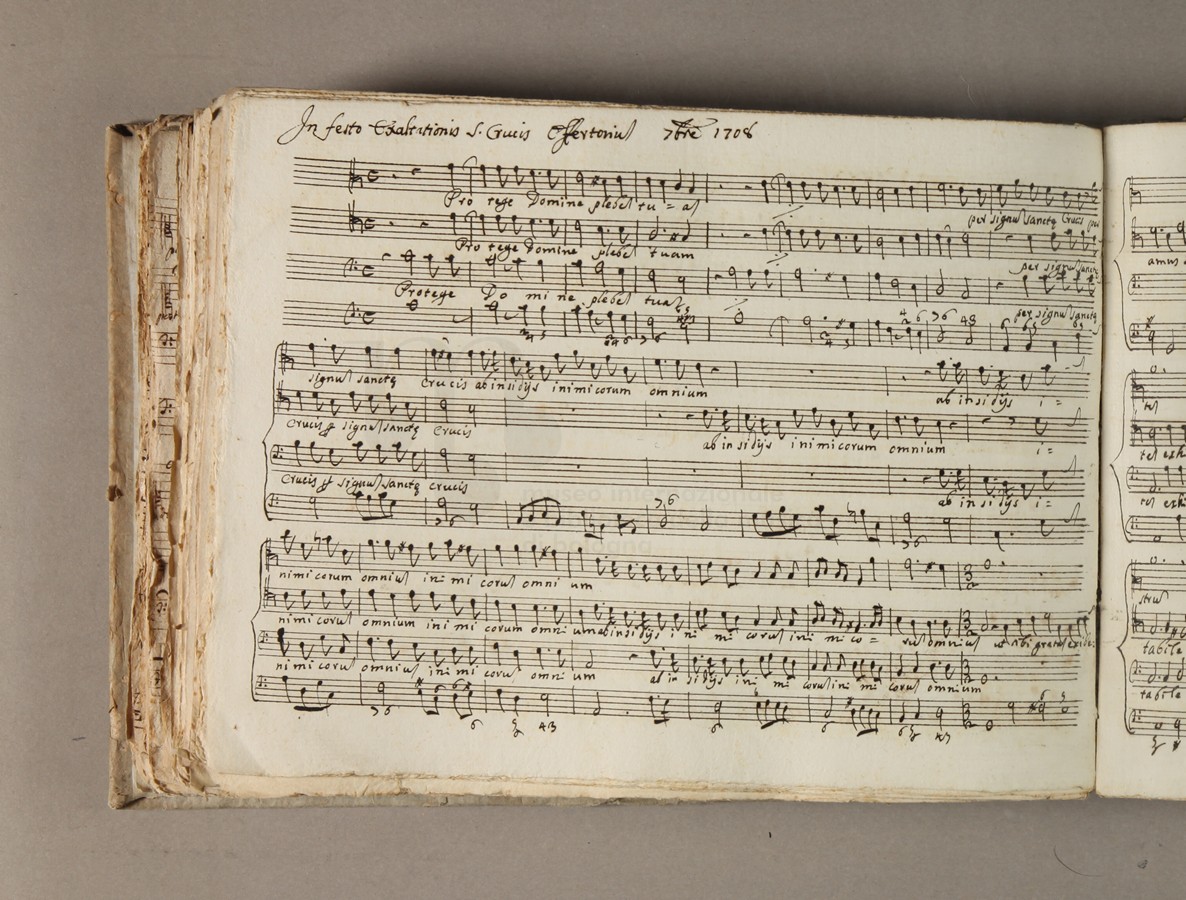 In festo Exaltationis S. Crucis Offertoriu 7bre 1708
Pro tege Domine plebe tu = a
per signu sanctę Crucis
Pro tege Domine plebe tuam
per signu sanctę
Protege Do mi ne plebe tua
per signu sanctę
signu sanctę Crucis ab insidijs inimicorum omnium ab insidijs i =
Crucis signu sanctę Crucis ab insidijs inimicorum omnium i =
Crucis signu sanctę crucis ab insidijs i =
nimicorum omniu ini mi coru omni um
nimicoru omnium ini mi corum omni um ab insidijs i ni mi coru ini mi co = ru omniu ut tibi
nimicoru omniu ini mi coru omni um ab insidijs ini mi coru ini mi coru omnium
museo internazionale
di bologna
amus
tabile
tabile